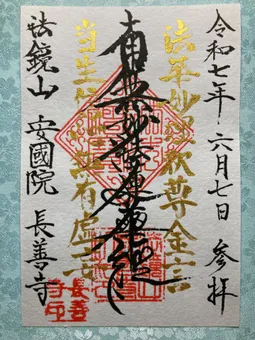 令和七年六月七日 参拝
法華妙理釈尊金言
南無妙法蓮華經
当生信心無有虚妄
法鏡山 安國院 長善寺
長善
寺印